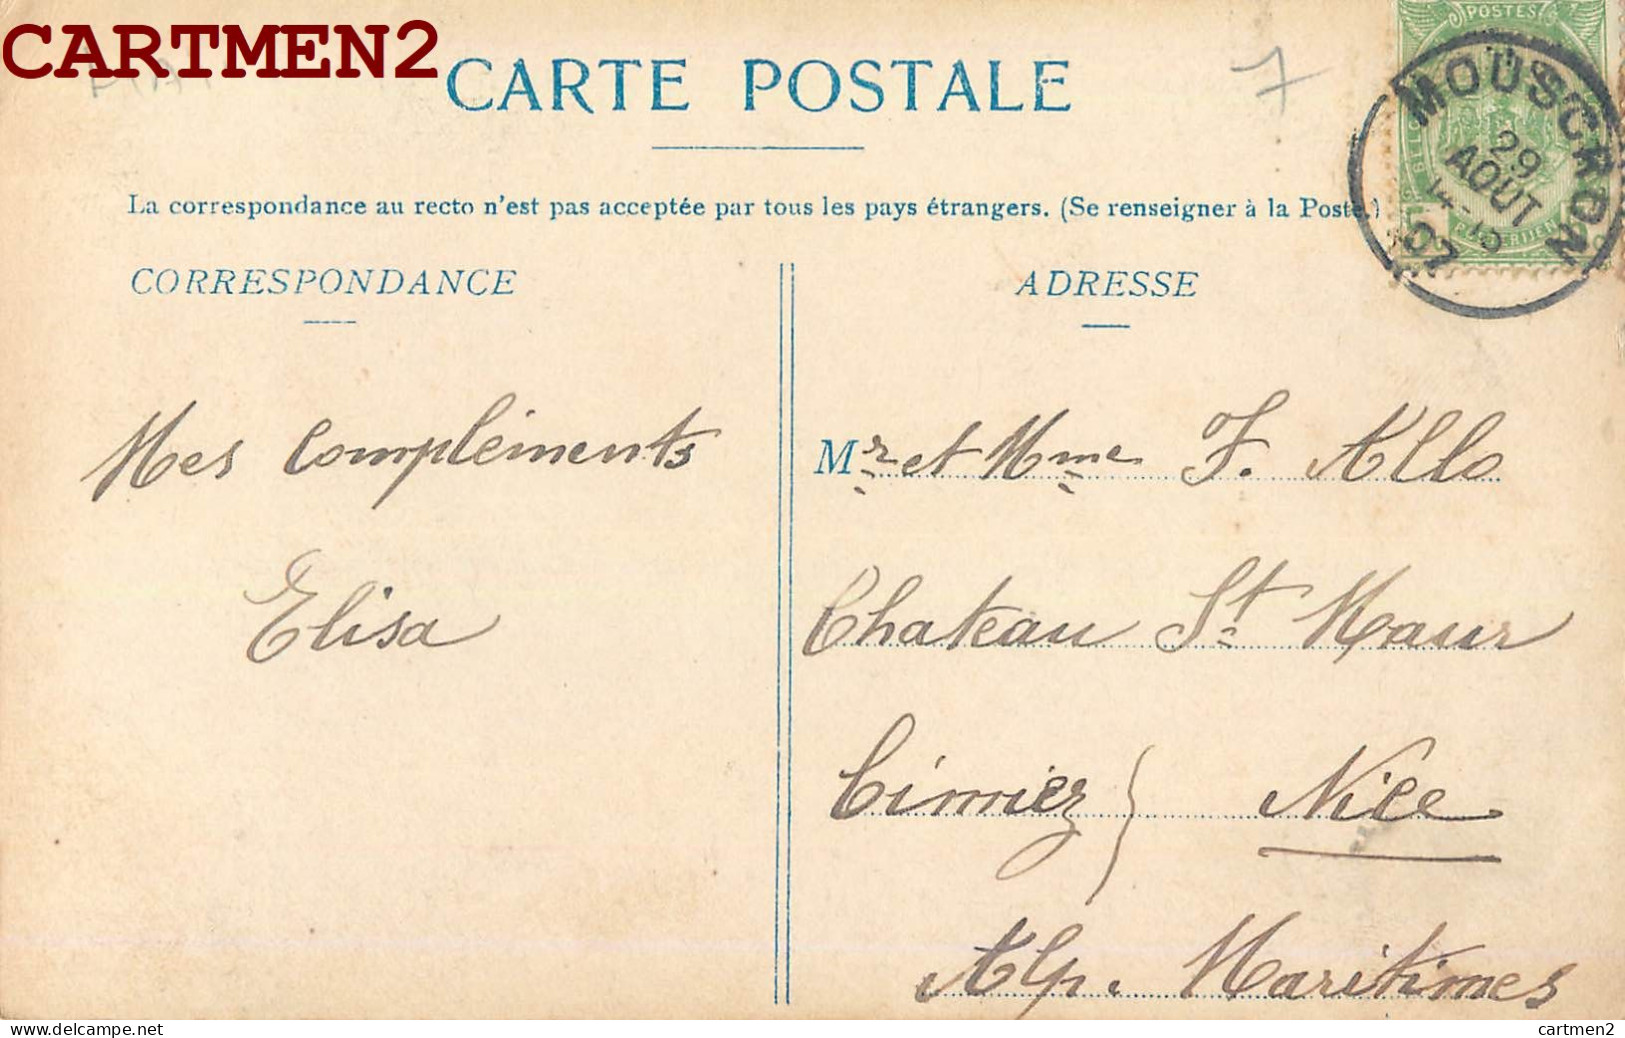 CARTMEN2
CARTE POSTALE
7
POSTES
MOUSCRON
29
AOUT
14-15
07
La correspondance au recto n'est pas acceptée par tous les pays étrangers. (Se renseigner à la Poste.)
CORRESPONDANCE
ADRESSE
Mes compléments
Elisa
Mr et Mme F. Allo
Chateau St Maur
Cimiez } Nice
Alp. Maritimes
cartmen2